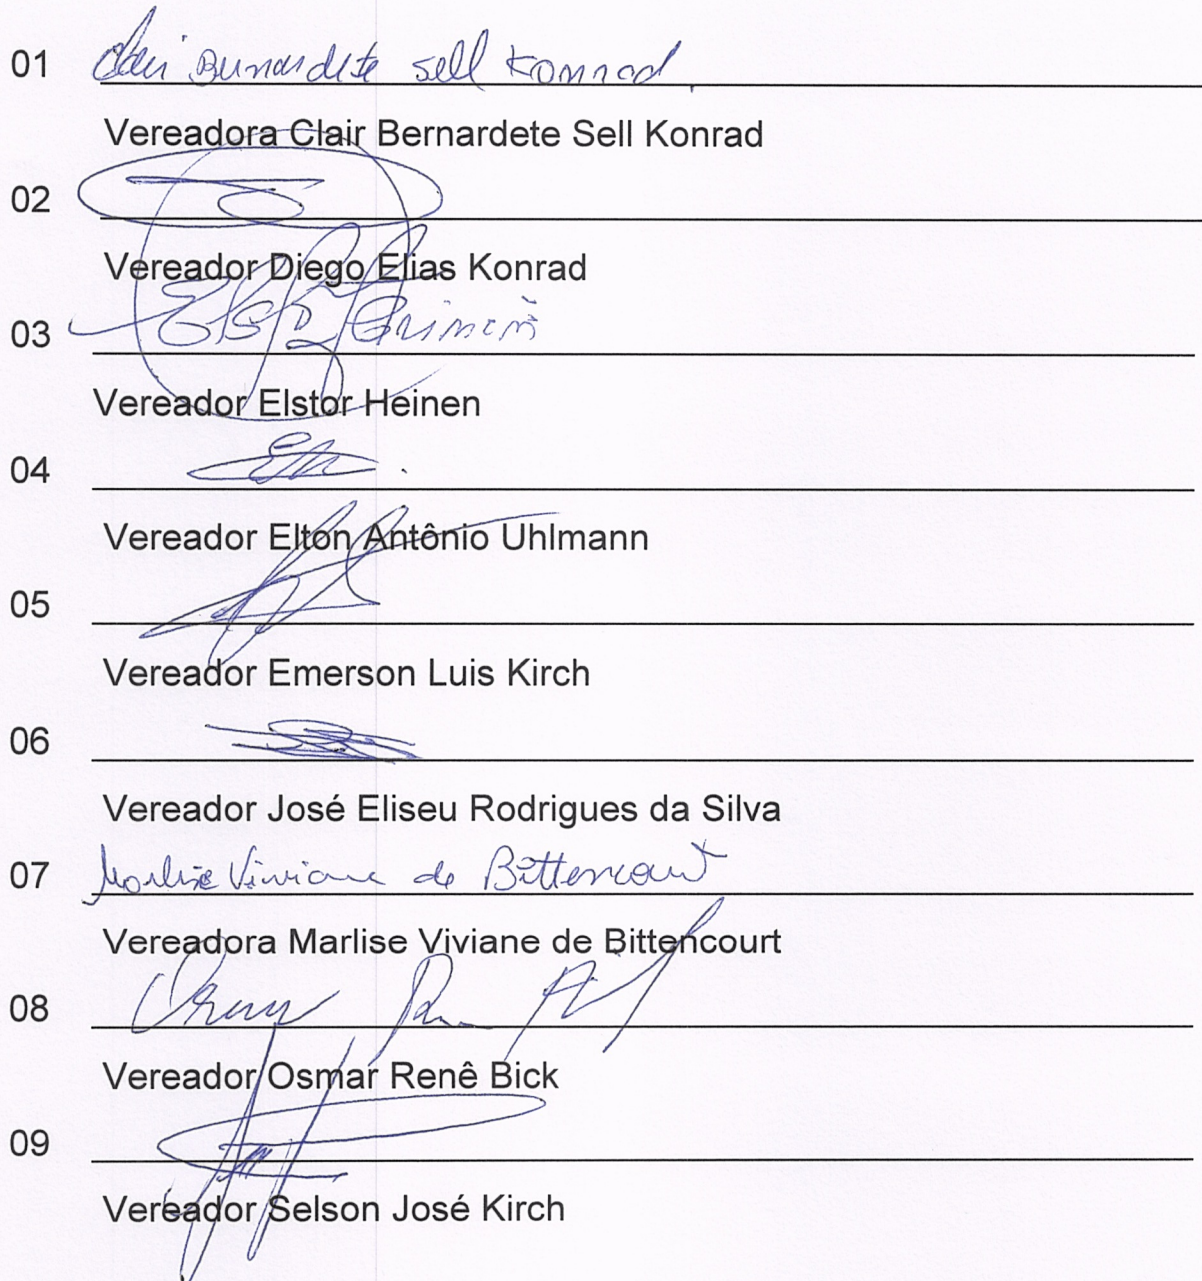 01 Clair Bernardete Sell Konrad
Vereadora Clair Bernardete Sell Konrad
02
Vereador Diego Elias Konrad
03
Vereador Elstor Heinen
04
Vereador Elton Antônio Uhlmann
05
Vereador Emerson Luis Kirch
06
Vereador José Eliseu Rodrigues da Silva
07 Marlise Viviane de Bittencourt
Vereadora Marlise Viviane de Bittencourt
08
Vereador Osmar Renê Bick
09
Vereador Selson José Kirch